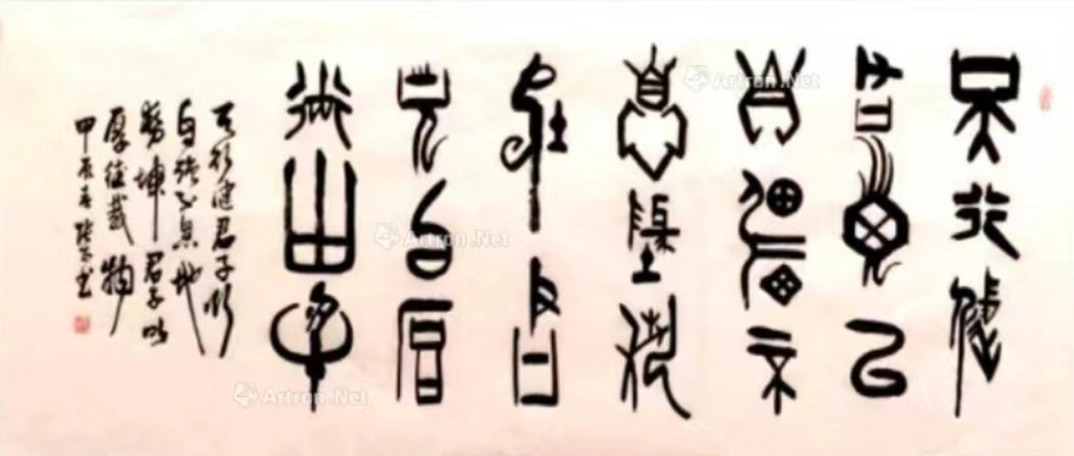 天行健
君子以
自強不
息地勢
坤君
子以厚
德載物
天行健君子以
自強不息地
勢坤君子以
厚德載物
甲辰春書
Artron.Net
Artron.Net
Artron.Net